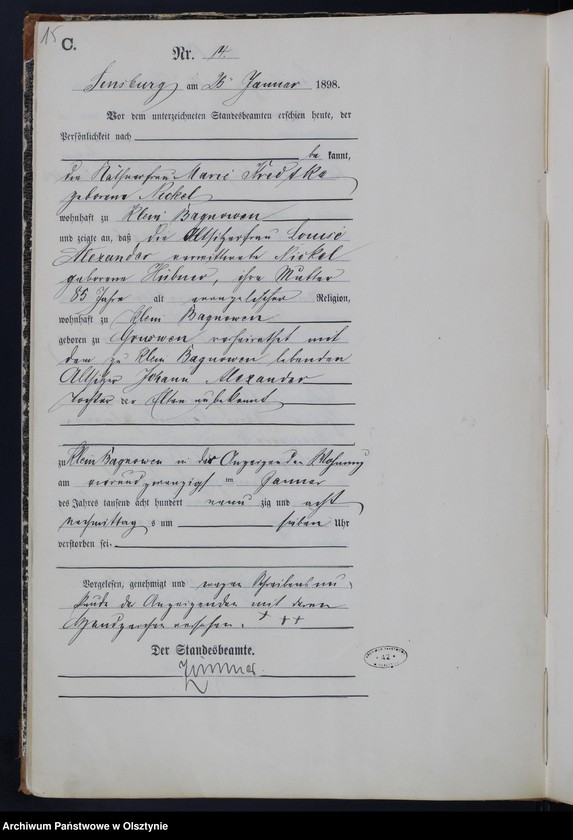 15
C.
Nr. 14.
Sensburg am 26 Januar 1898.
Vor dem unterzeichneten Standesbeamten erschien heute, der
Persönlichkeit nach
be kannt,
die Käthnerfrau Marie
geborene Nickel
wohnhaft zu Klein Bagnowen
und zeigte an, daß die Altsitzerfrau Louise
Alexander verwittwete Nickel
geborene Hübner, ihre Mutter
85 Jahre alt evangelischer Religion,
wohnhaft zu Klein Bagnowen
geboren zu verheirathet mit
dem zu Klein Bagnowen lebenden
Altsitzer Johann Alexander
Tochter der Eltern unbekannt
zu Klein Bagnowen in der Anzeigenden Wohnung
am vierundzwanzigst en Januar
des Jahres tausend acht hundert neun zig und acht
Nachmittag s um sieben Uhr
verstorben sei.
Vorgelesen, genehmigt und wegen Schreibensun-
kunde der Anzeigenden mit deren
Handzeichen versehen. + ++
Der Standesbeamte.
Zimmer
42
Archiwum Państwowe w Olsztynie